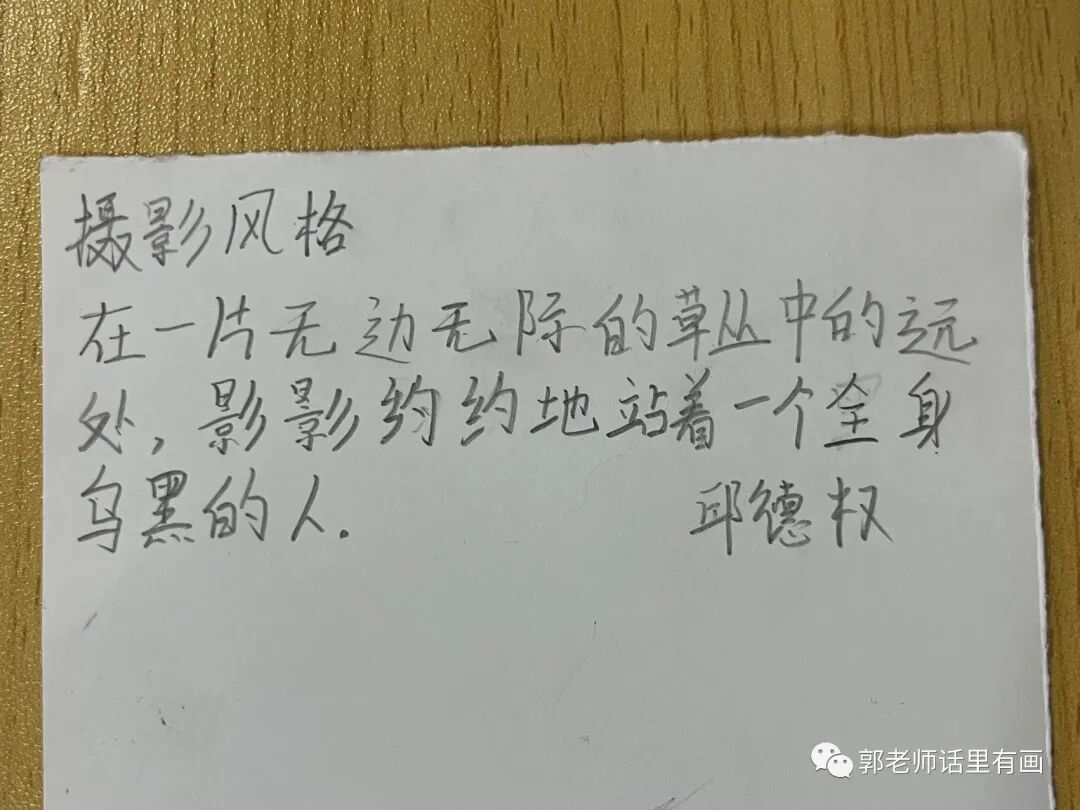 摄影风格
在一片无边无际的草丛中的远
处,影影约约地站着一个全身
乌黑的人.
邱德权
郭老师话里有画